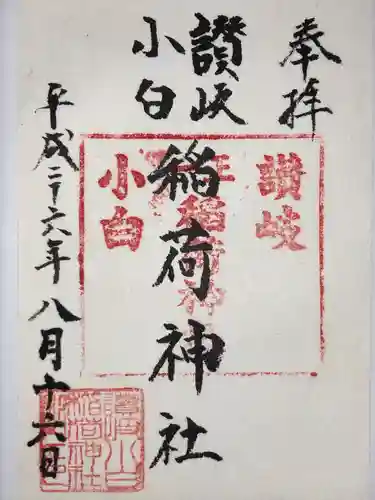 奉拝
讃岐
小白
稲荷神社
平成二十六年八月十六日
讃岐
稲荷神社
小白